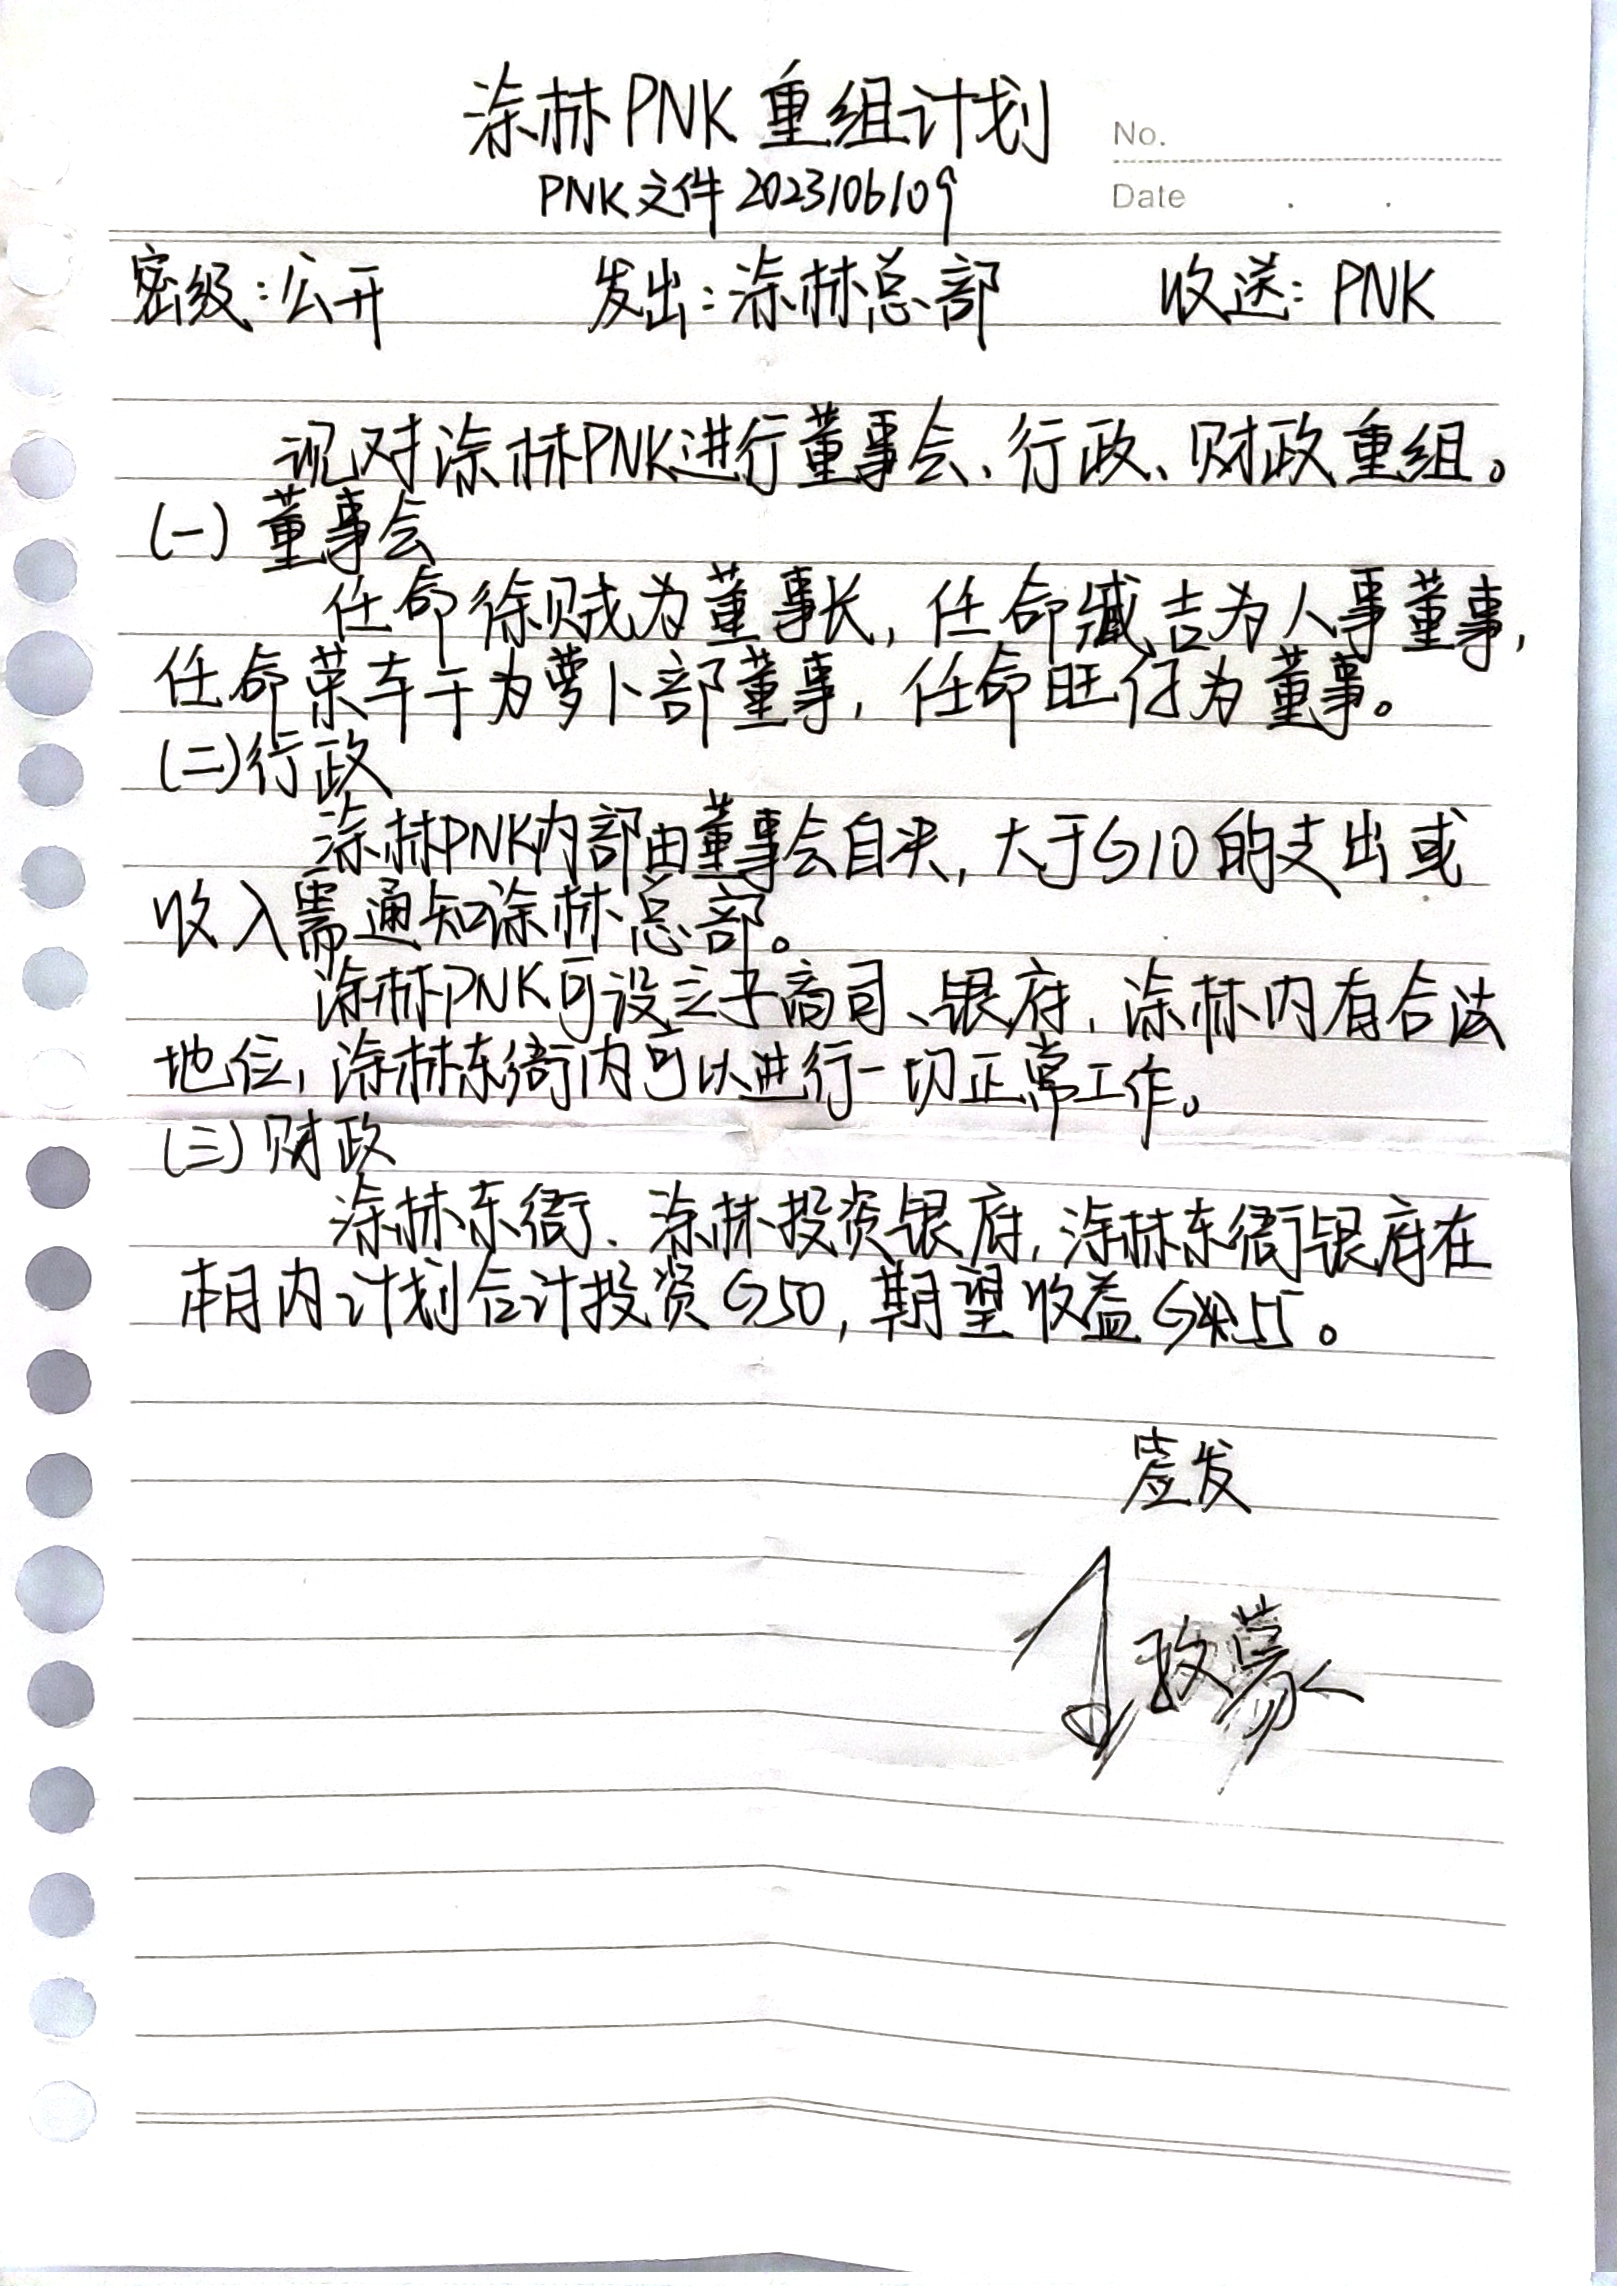 涂林PNK重组计划
No.
PNK文件 2023106109
Date
密级:公开 发出:涂林总部 收送:PNK
现对涂林PNK进行董事会、行政、财政重组。
(一)董事会
任命徐贼为董事长,任命臧吉为人事董事,
任命菜车干为萝卜部董事,任命旺仔为董事。
(二)行政
涂林PNK内部由董事会自决,大于G10的支出或
收入需通知涂林总部。
涂林PNK可设立子商司、银府,涂林内有合法
地位,涂林东衙内可以进行一切正常工作。
(三)财政
涂林东衙、涂林投资银府,涂林东衙银府在
本月内计划合计投资G50,期望收益G55。
发